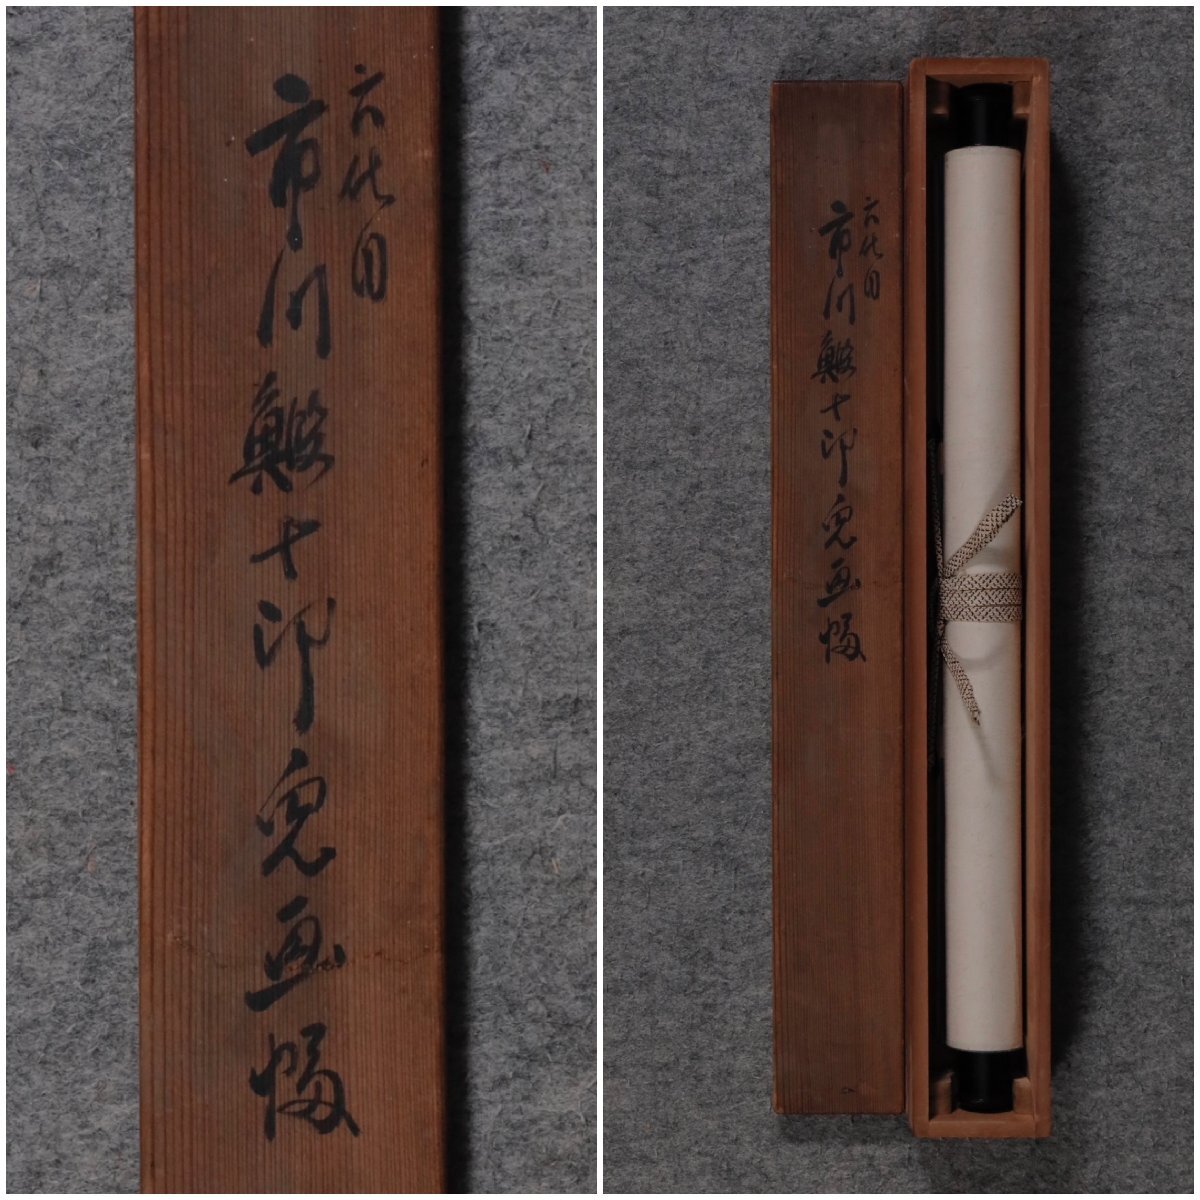 六代目
市川鰕十郎兎画幅
六代目
市川鰕十郎兎画幅